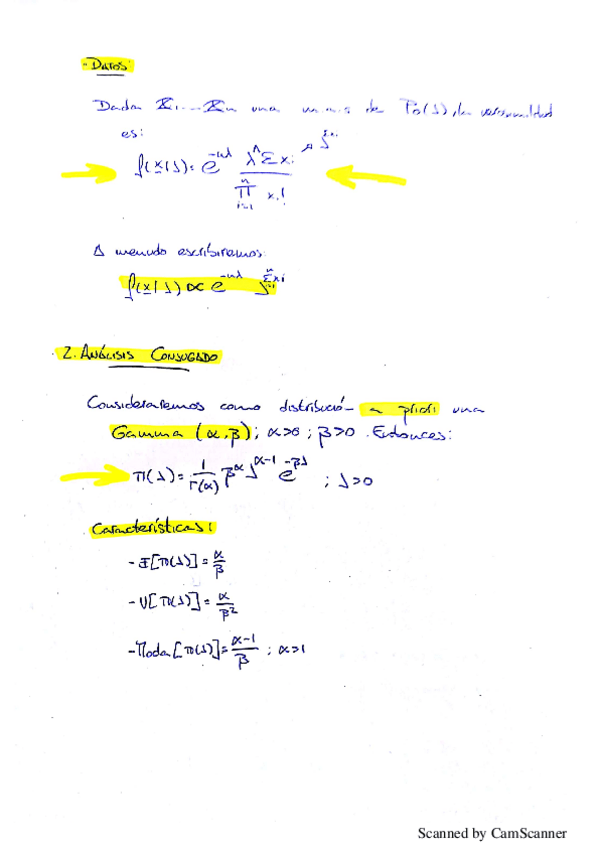 - DATOS:
Dada X1...Xn una m.a.s de Po(λ), la verosimilitud
es:
f(x|λ) = e^-nλ λ^Σxi / ∏ i=1 n xi! → λ^Σxi
A menudo escribiremos:
f(x|λ) ∝ e^-nλ λ^Σ i=1 n xi
2. ANÁLISIS CONJUGADO
Consideraremos como distribució- a priori una
Gamma (α, β); α>0; β>0. Entonces:
π(λ) = 1/Γ(α) β^α λ^α-1 e^-βλ ; λ>0
Características:
- E[π(λ)] = α/β
- V[π(λ)] = α/β²
- Moda[π(λ)] = α-1/β ; α>1
Scanned by CamScanner